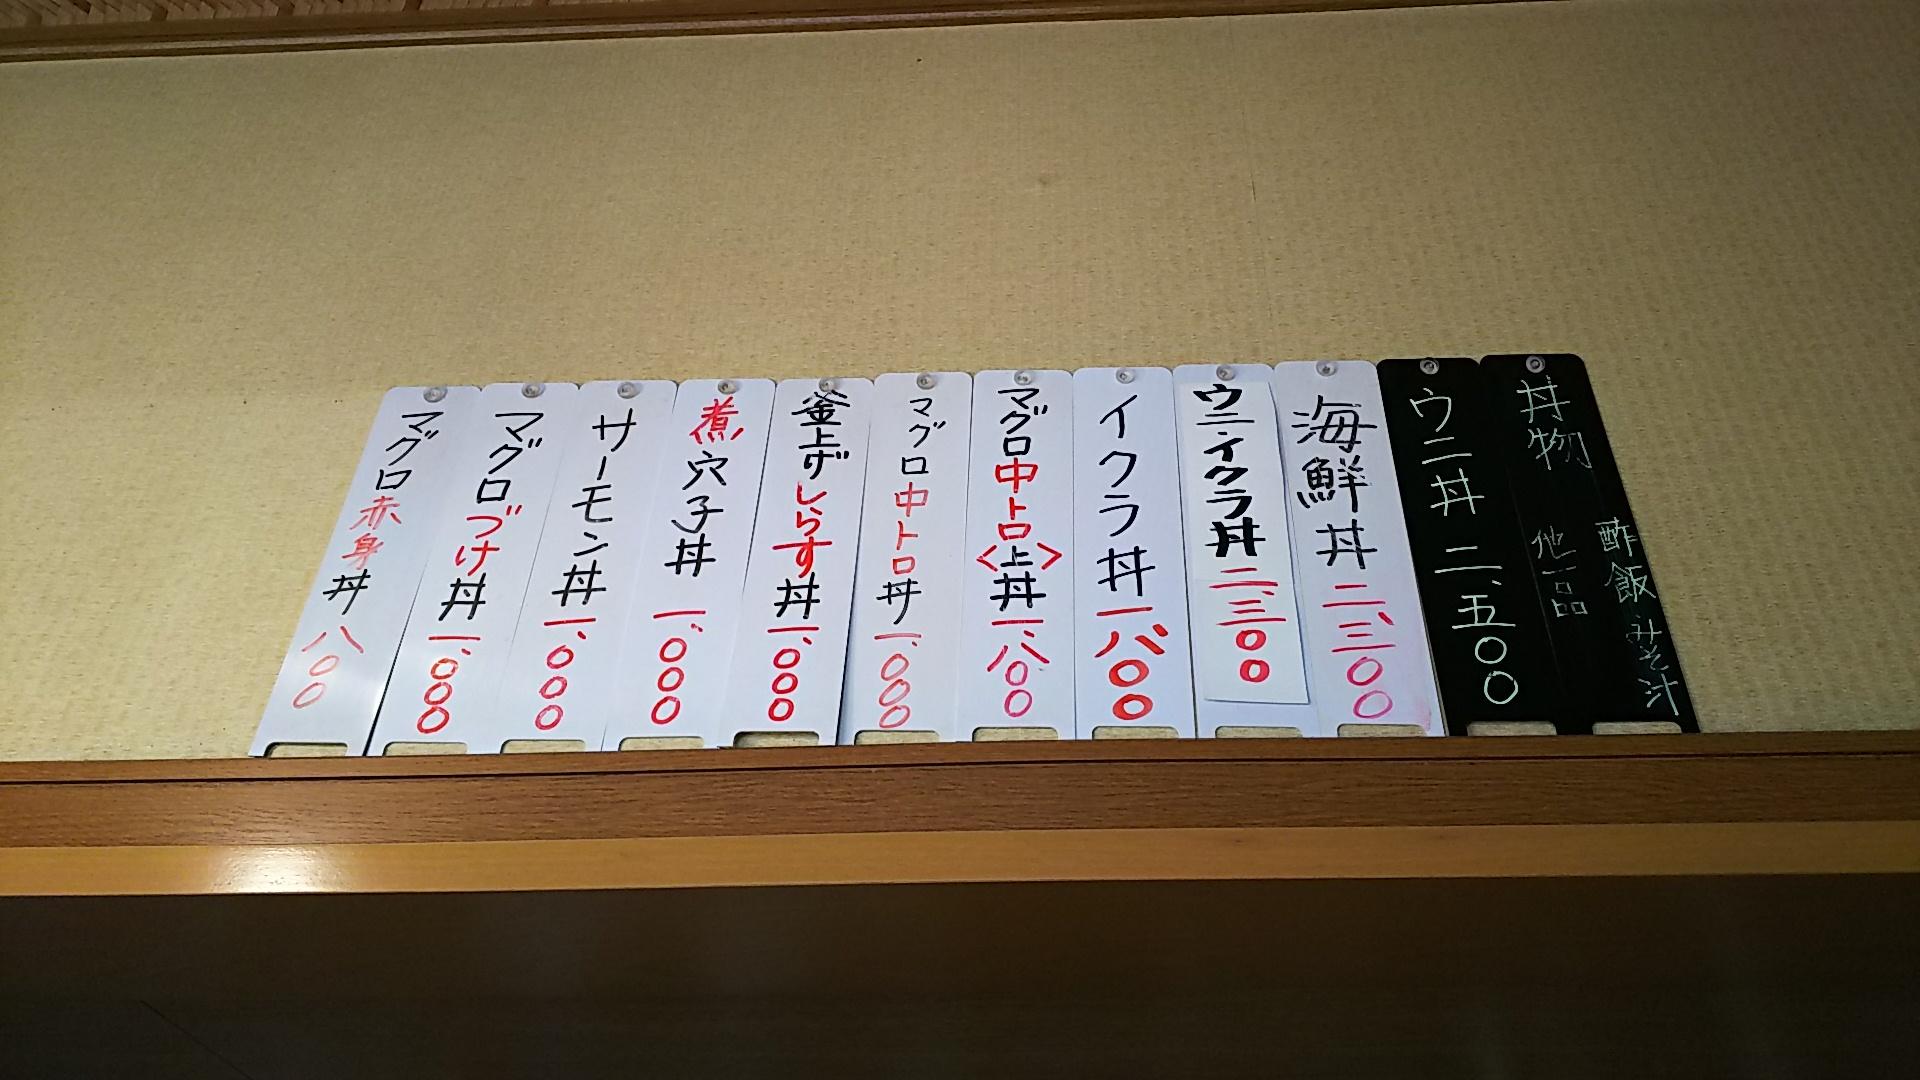 丼物 酢飯 みそ汁
他一品
ウニ丼 二、五〇〇
海鮮丼 二、三〇〇
ウニ・イクラ丼 二、三〇〇
イクラ丼 一、八〇〇
マグロ中トロ<上>丼 一、八〇〇
マグロ中トロ丼 一、〇〇〇
釜上げしらす丼 一、〇〇〇
煮穴子丼 一、〇〇〇
サーモン丼 一、〇〇〇
マグロづけ丼 一、〇〇〇
マグロ赤身丼 八〇〇